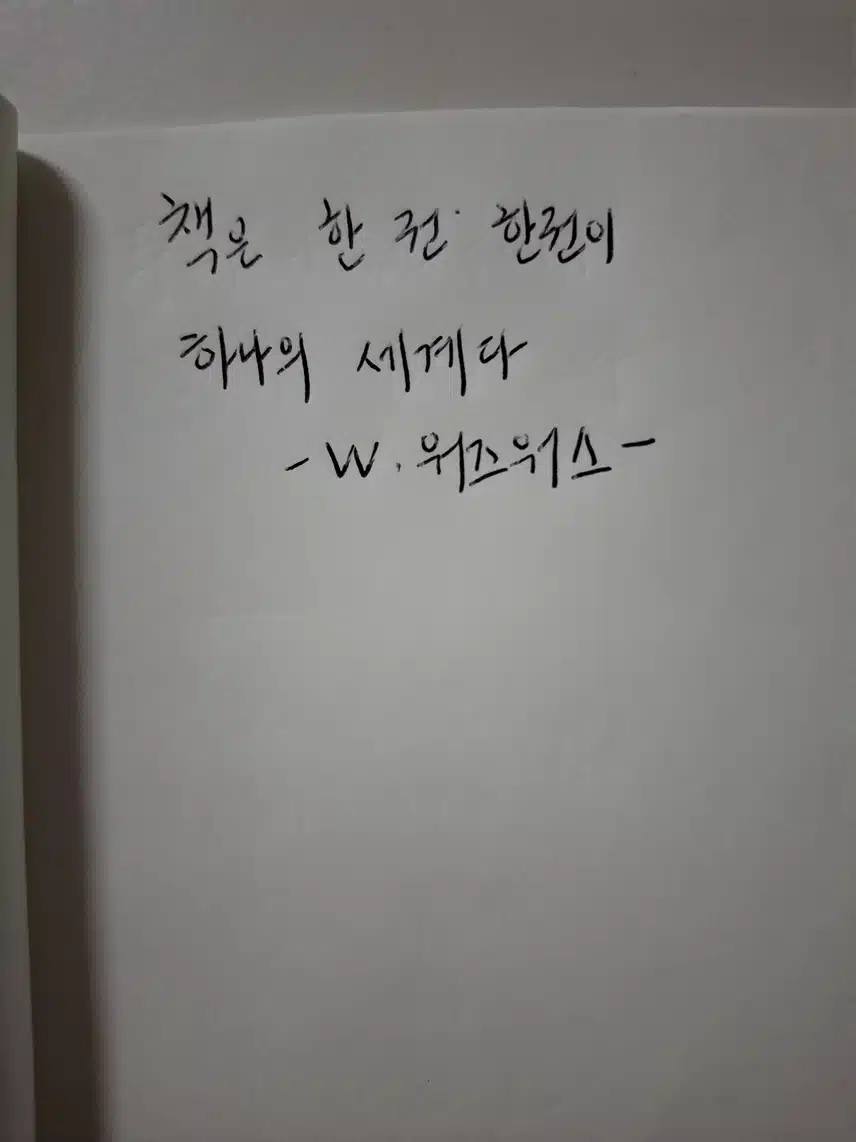 책은 한 권 한권이
하나의 세계다
- W. 워즈워스 -